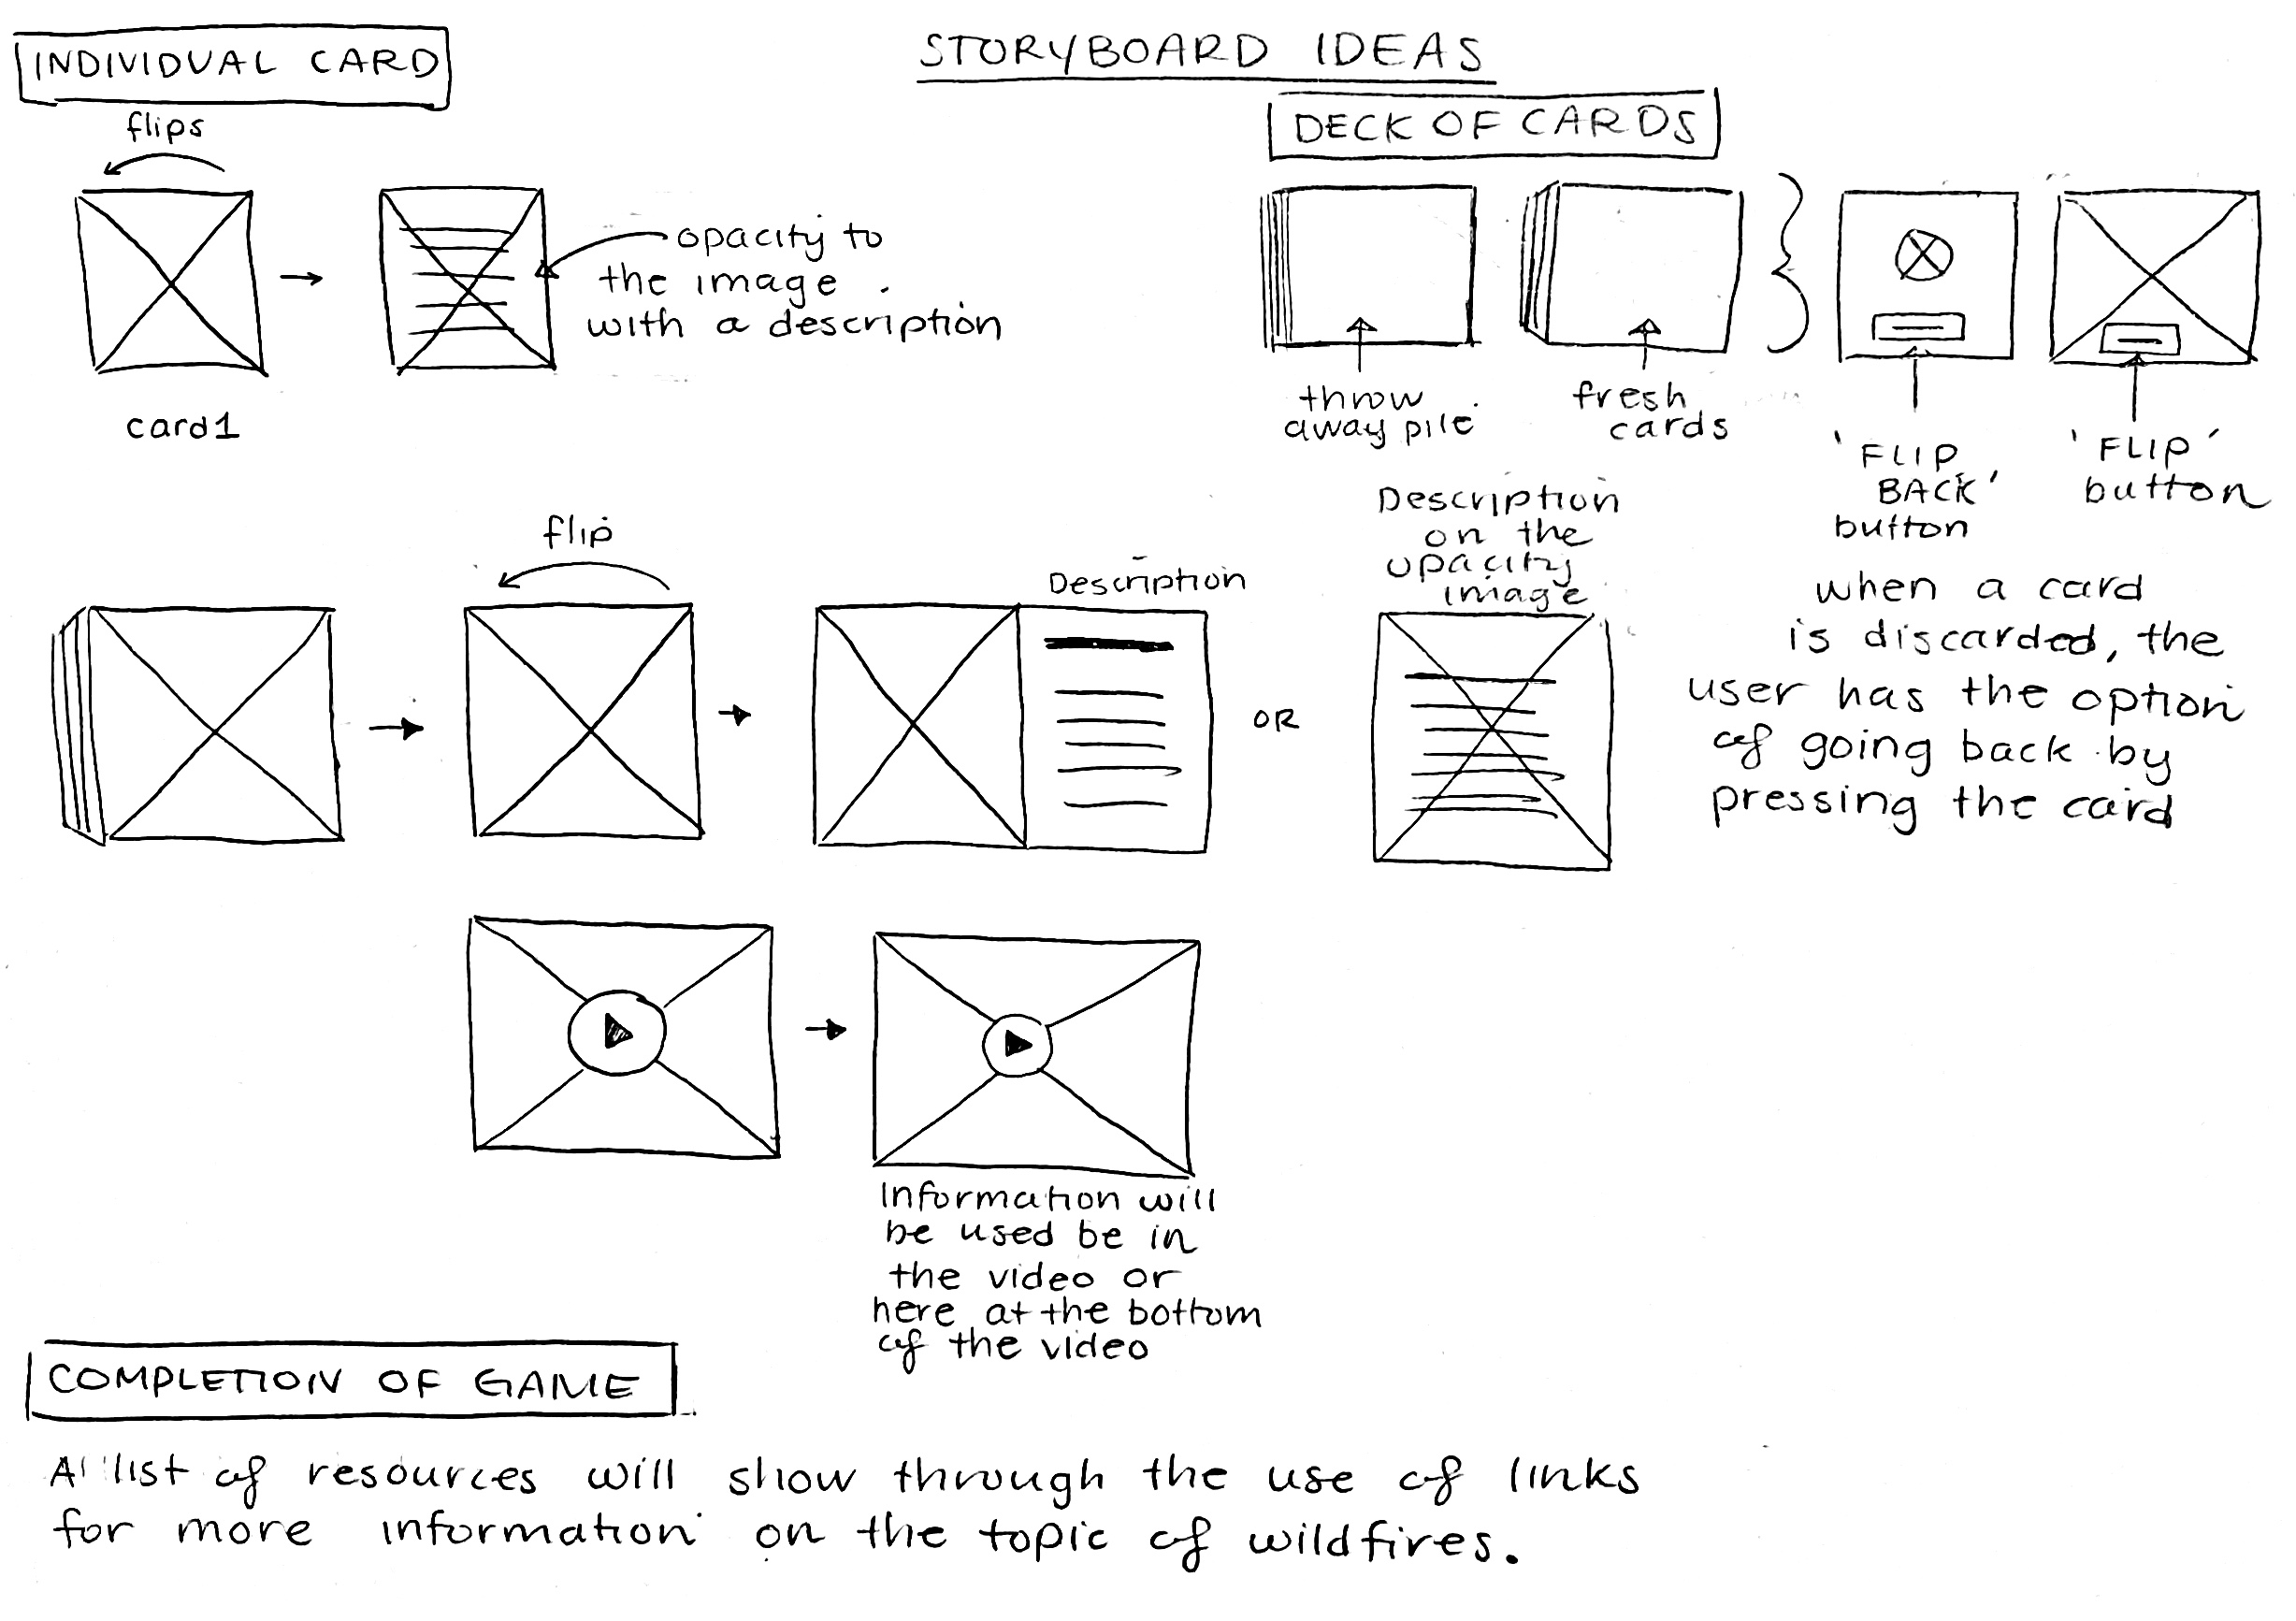 STORYBOARD IDEAS
INDIVIDUAL CARD
flips
card1
opacity to
the image
with a description
DECK OF CARDS
throw
away pile
fresh
cards
'FLIP
BACK'
button
'FLIP'
button
when a card
is discarded, the
user has the option
of going back by
pressing the card
flip
Description
OR
Description
on the
opacity
image
Information will
be used be in
the video or
here at the bottom
of the video
COMPLETION OF GAME
A list of resources will show through the use of links
for more information on the topic of wildfires.